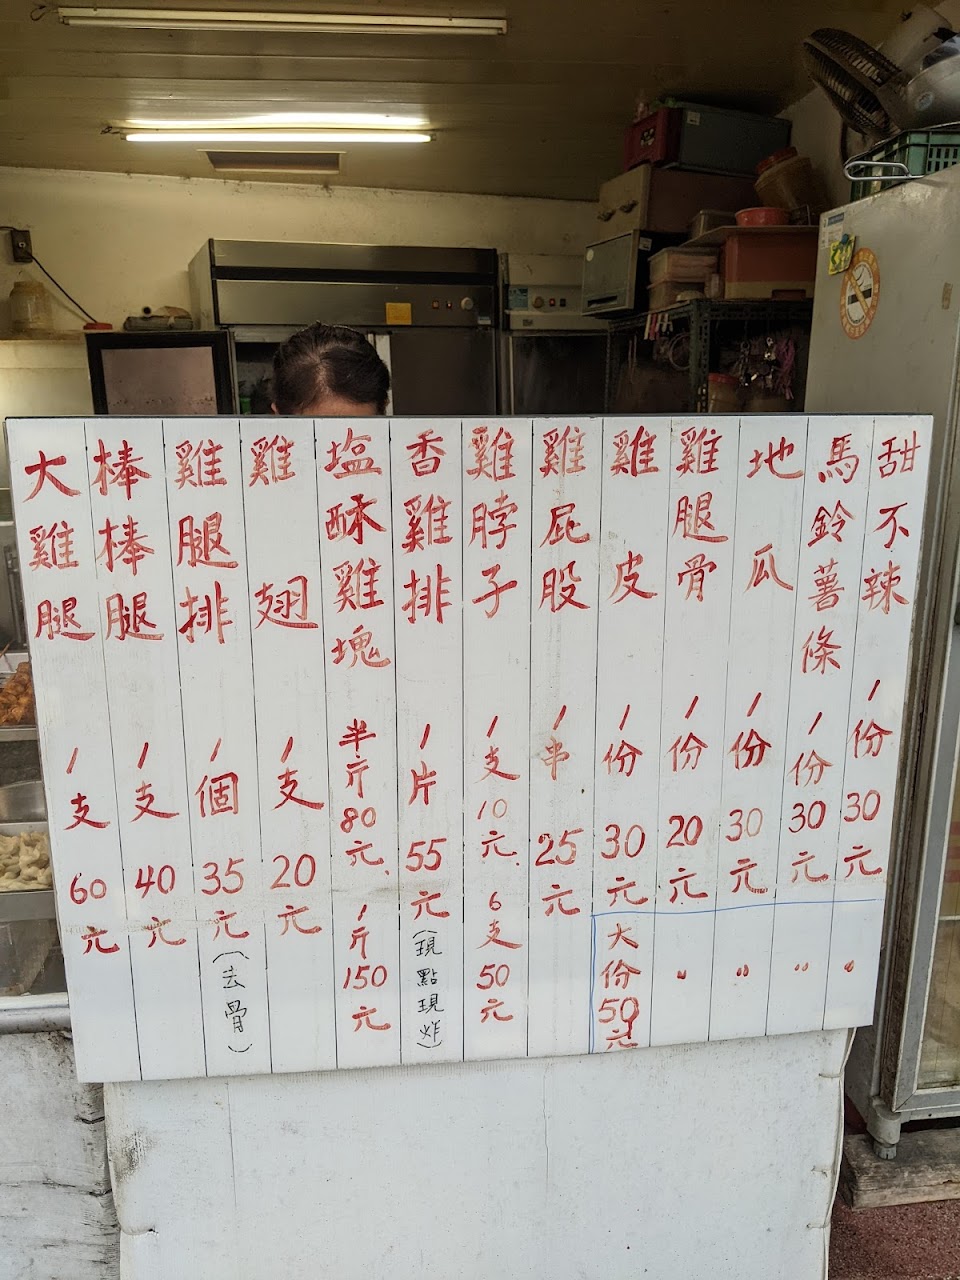 大雞腿 1支 60元
棒棒腿 1支 40元
雞腿排 1個 35元 (去骨)
雞翅 1支 20元
塩酥雞塊 半斤80元. 1斤150元
香雞排 1片 55元 (現點現炸)
雞脖子 1支10元. 6支50元
雞屁股 1串 25元
雞皮 1份 30元 大份50元
雞腿骨 1份 20元 〃
地瓜 1份 30元 〃
馬鈴薯條 1份 30元 〃
甜不辣 1份 30元 〃